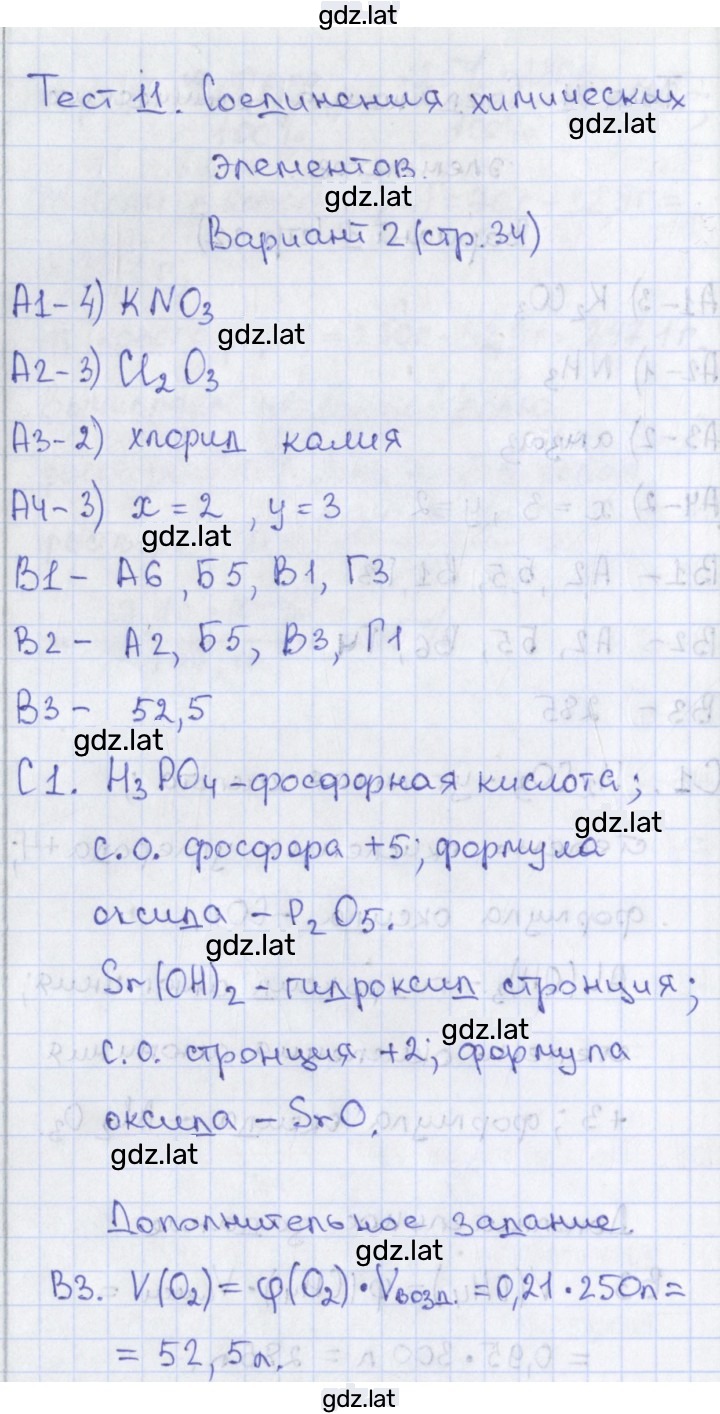 gdz.lat
Тест 11. Соединения химических
gdz.lat
элементов.
gdz.lat
Вариант 2 (стр. 34)
А1 - 4) KNO₃
gdz.lat
А2 - 3) Cl₂O₃
А3 - 2) хлорид калия
А4 - 3) x = 2, y = 3
gdz.lat
В1 - А6, Б5, В1, Г3
В2 - А2, Б5, В3, Г1
В3 - 52,5
gdz.lat
С1. H₃PO₄ - фосфорная кислота;
gdz.lat
с.о. фосфора +5; формула
оксида - P₂O₅.
gdz.lat
Sr(OH)₂ - гидроксид стронция;
gdz.lat
с.о. стронция +2; формула
оксида - SrO.
gdz.lat
Дополнительное задание.
gdz.lat
В3. V(O₂) = φ(O₂) · Vвозд. = 0,21 · 250л =
= 52,5л.
gdz.lat